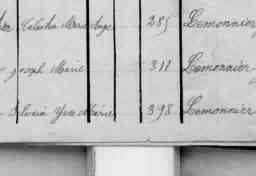 Marie Ange 285 Lemonnier
Joseph Marie 311 Lemonnier
Silvain Yves Marie 398 Lemonnier